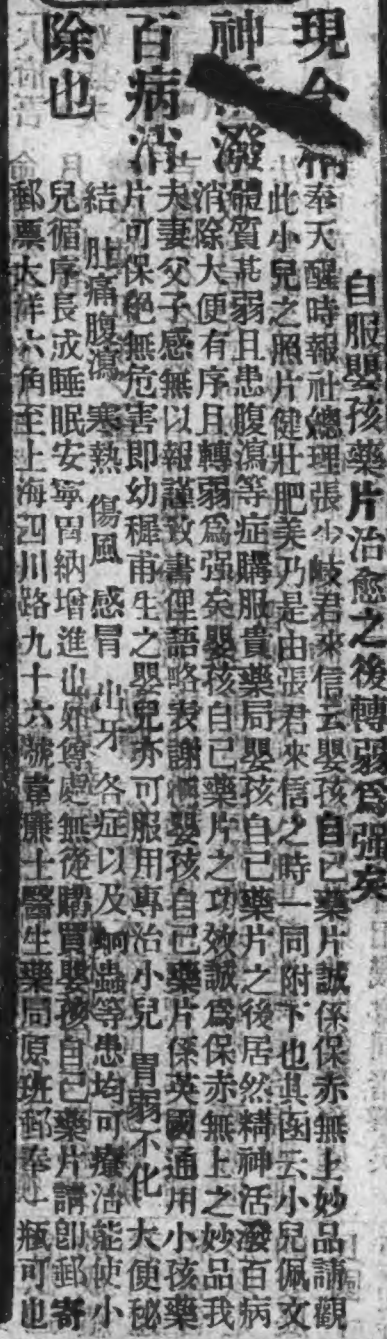 現今精
神活潑
百病消
除也
自服嬰孩藥片治愈之後轉弱爲强矣
奉天醒時報社總理張少岐君來信云嬰孩自己藥片誠係保赤無上妙品請觀
此小兒之照片健壯肥美乃是由張君來信之時一同附下也其函云小兒佩文
體質甚弱且患腹瀉等症購服貴藥局嬰孩自己藥片之後居然精神活潑百病
消除大便有序且轉弱爲强矣嬰孩自己藥片之功效誠爲保赤無上之妙品我
夫妻父子感無以報謹致書俚語略表謝嬰孩自己藥片係英國通用小孩藥
片可保絕無危害即幼穉甫生之嬰兒亦可服用專治小兒 胃弱不化 大便秘
結 肚痛腹瀉 寒熱 傷風 感冒 出牙 各症以及蛔蟲等患均可療治能使小
兒循序長成睡眠安寧胃納增進也如尊處無從購買嬰孩自己藥片請卽郵寄
郵票大洋六角至上海四川路九十六號韋廉士醫生藥局原班郵奉一瓶可也